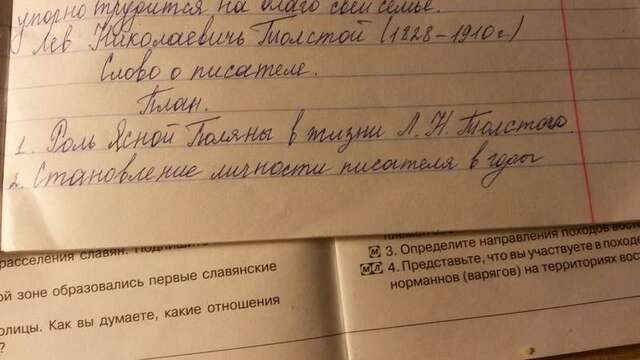 упорно трудится на благо своей семье.
Лев Николаевичь Толстой (1828-1910г.)
Слово о писателе.
План.
1. Роль Ясной Поляны в жизни Л. Н. Толстого.
2. Становление личности писателя в годы
расселения славян. Подпишите
ой зоне образовались первые славянские
олицы. Как вы думаете, какие отношения
?
М 3. Определите направления походов вос
МЛ 4. Представьте, что вы участвуете в поход
норманнов (варягов) на территориях вос